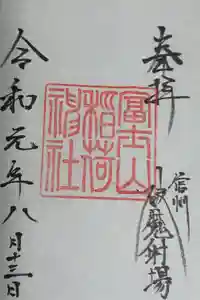 奉拝
信州
破魔射場
富士山
稲荷
神社
令和元年八月十三日